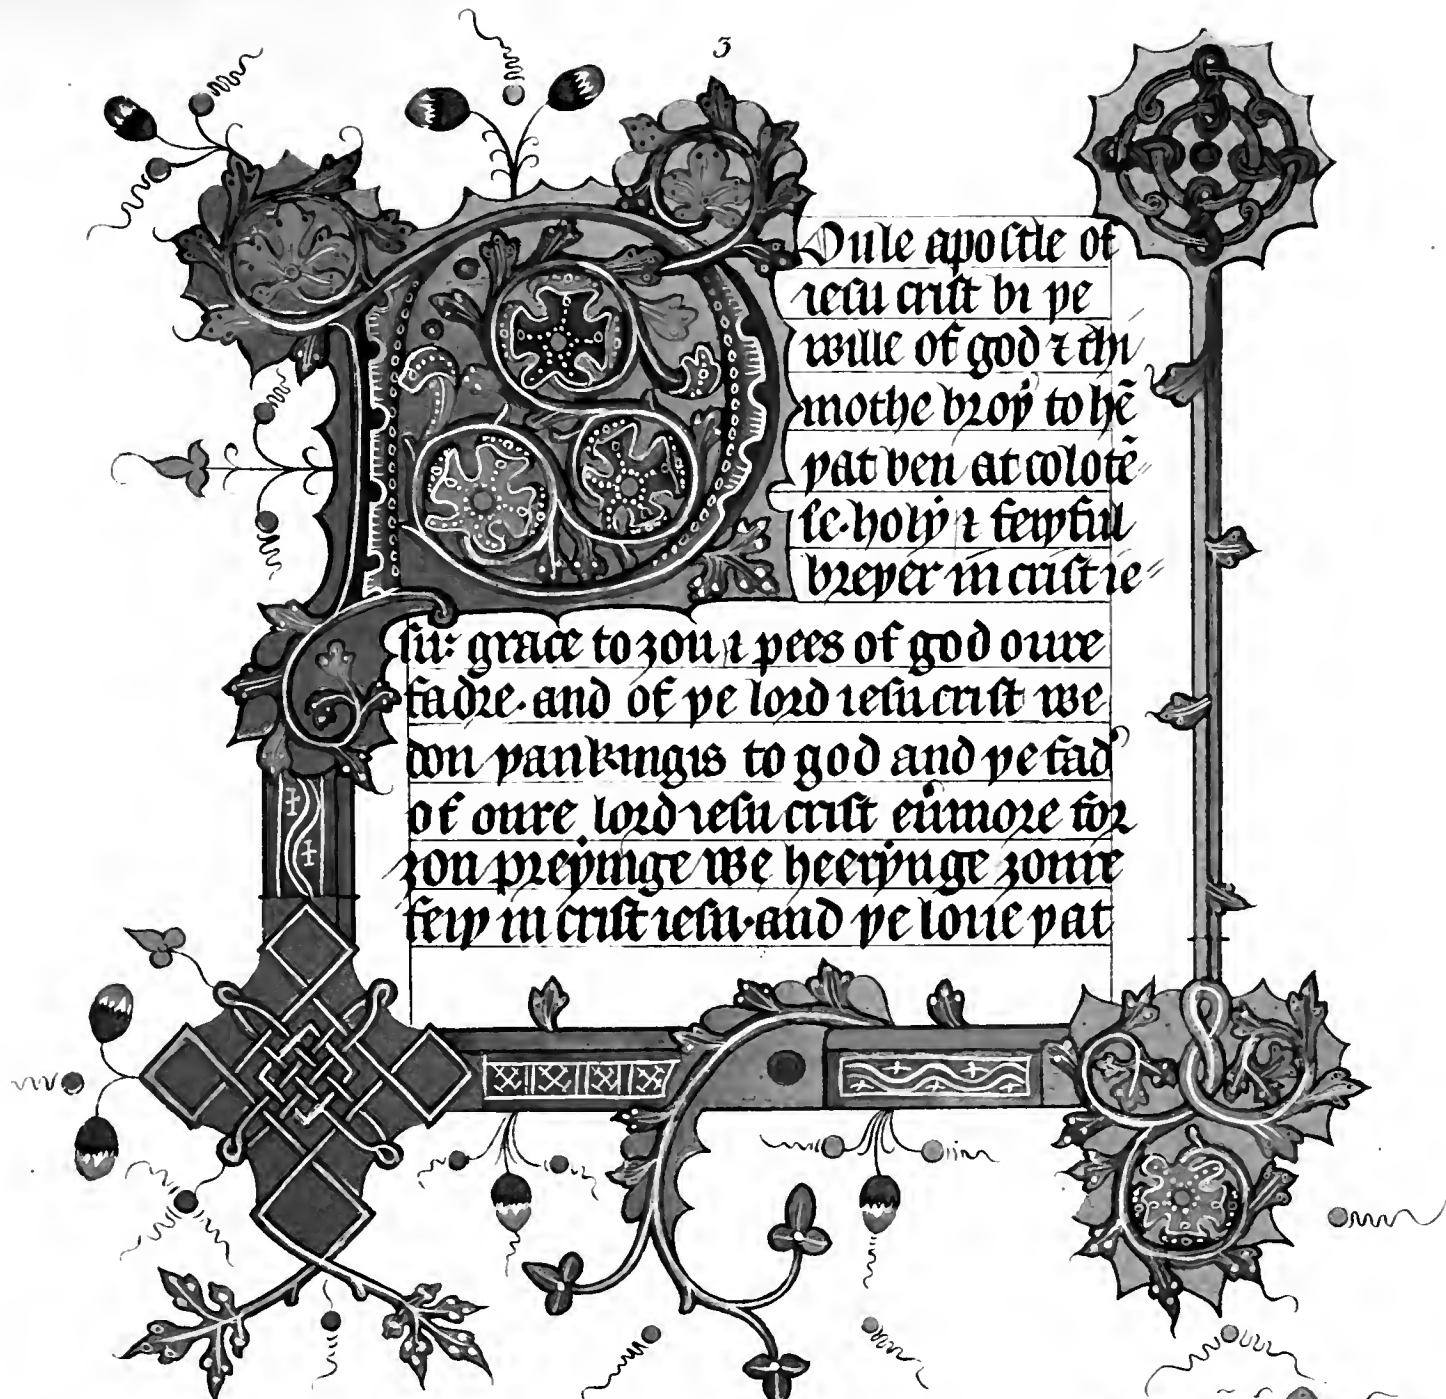 3
Poule apoſtle of
ieſu criſt bi þe
wille of god ⁊ thi
mothe broþ̉ to hē
þat ben at colocē⸗
ſe· holẏ ⁊ feiþful
breþer in criſt ie⸗
ſu: grace to ȝou ⁊ pees of god oure
fadre· and of þe lord ieſu criſt we
don þankingis to god and þe fad̉
of oure lord ieſu criſt eủmore for
ȝou preẏinge we heerẏnge ȝoure
feiþ in criſt ieſu· and þe loue þat